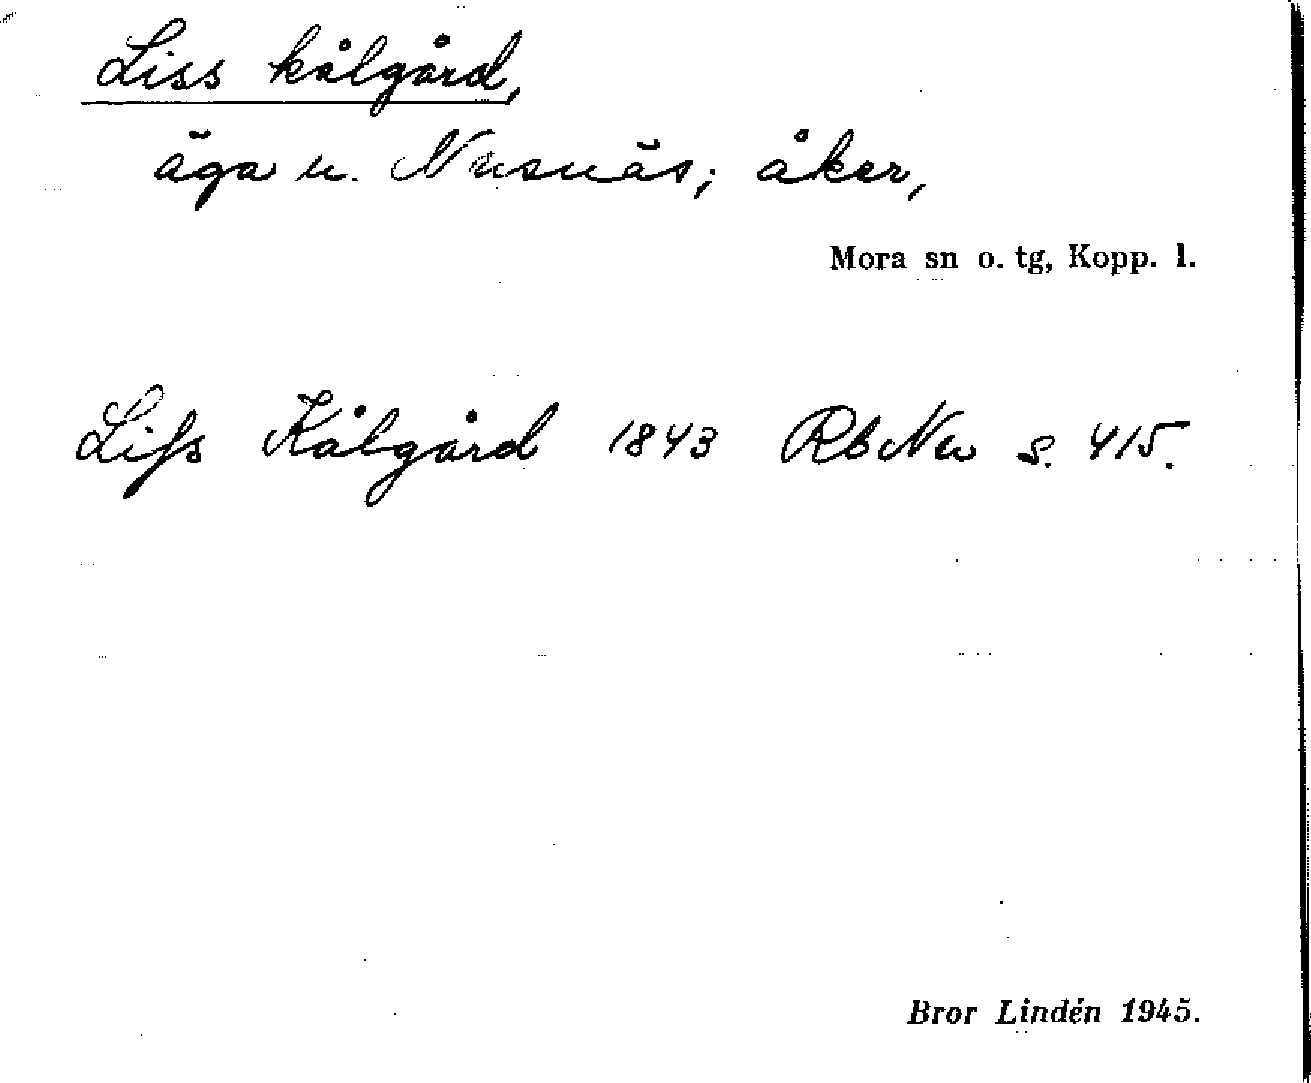 Liss kålgård,
äga u. Nusnäs; åker,
Mora sn o. tg, Kopp. l.
Lifs Kålgård 1843 RbNu s. 415.
Bror Lindén 1945.